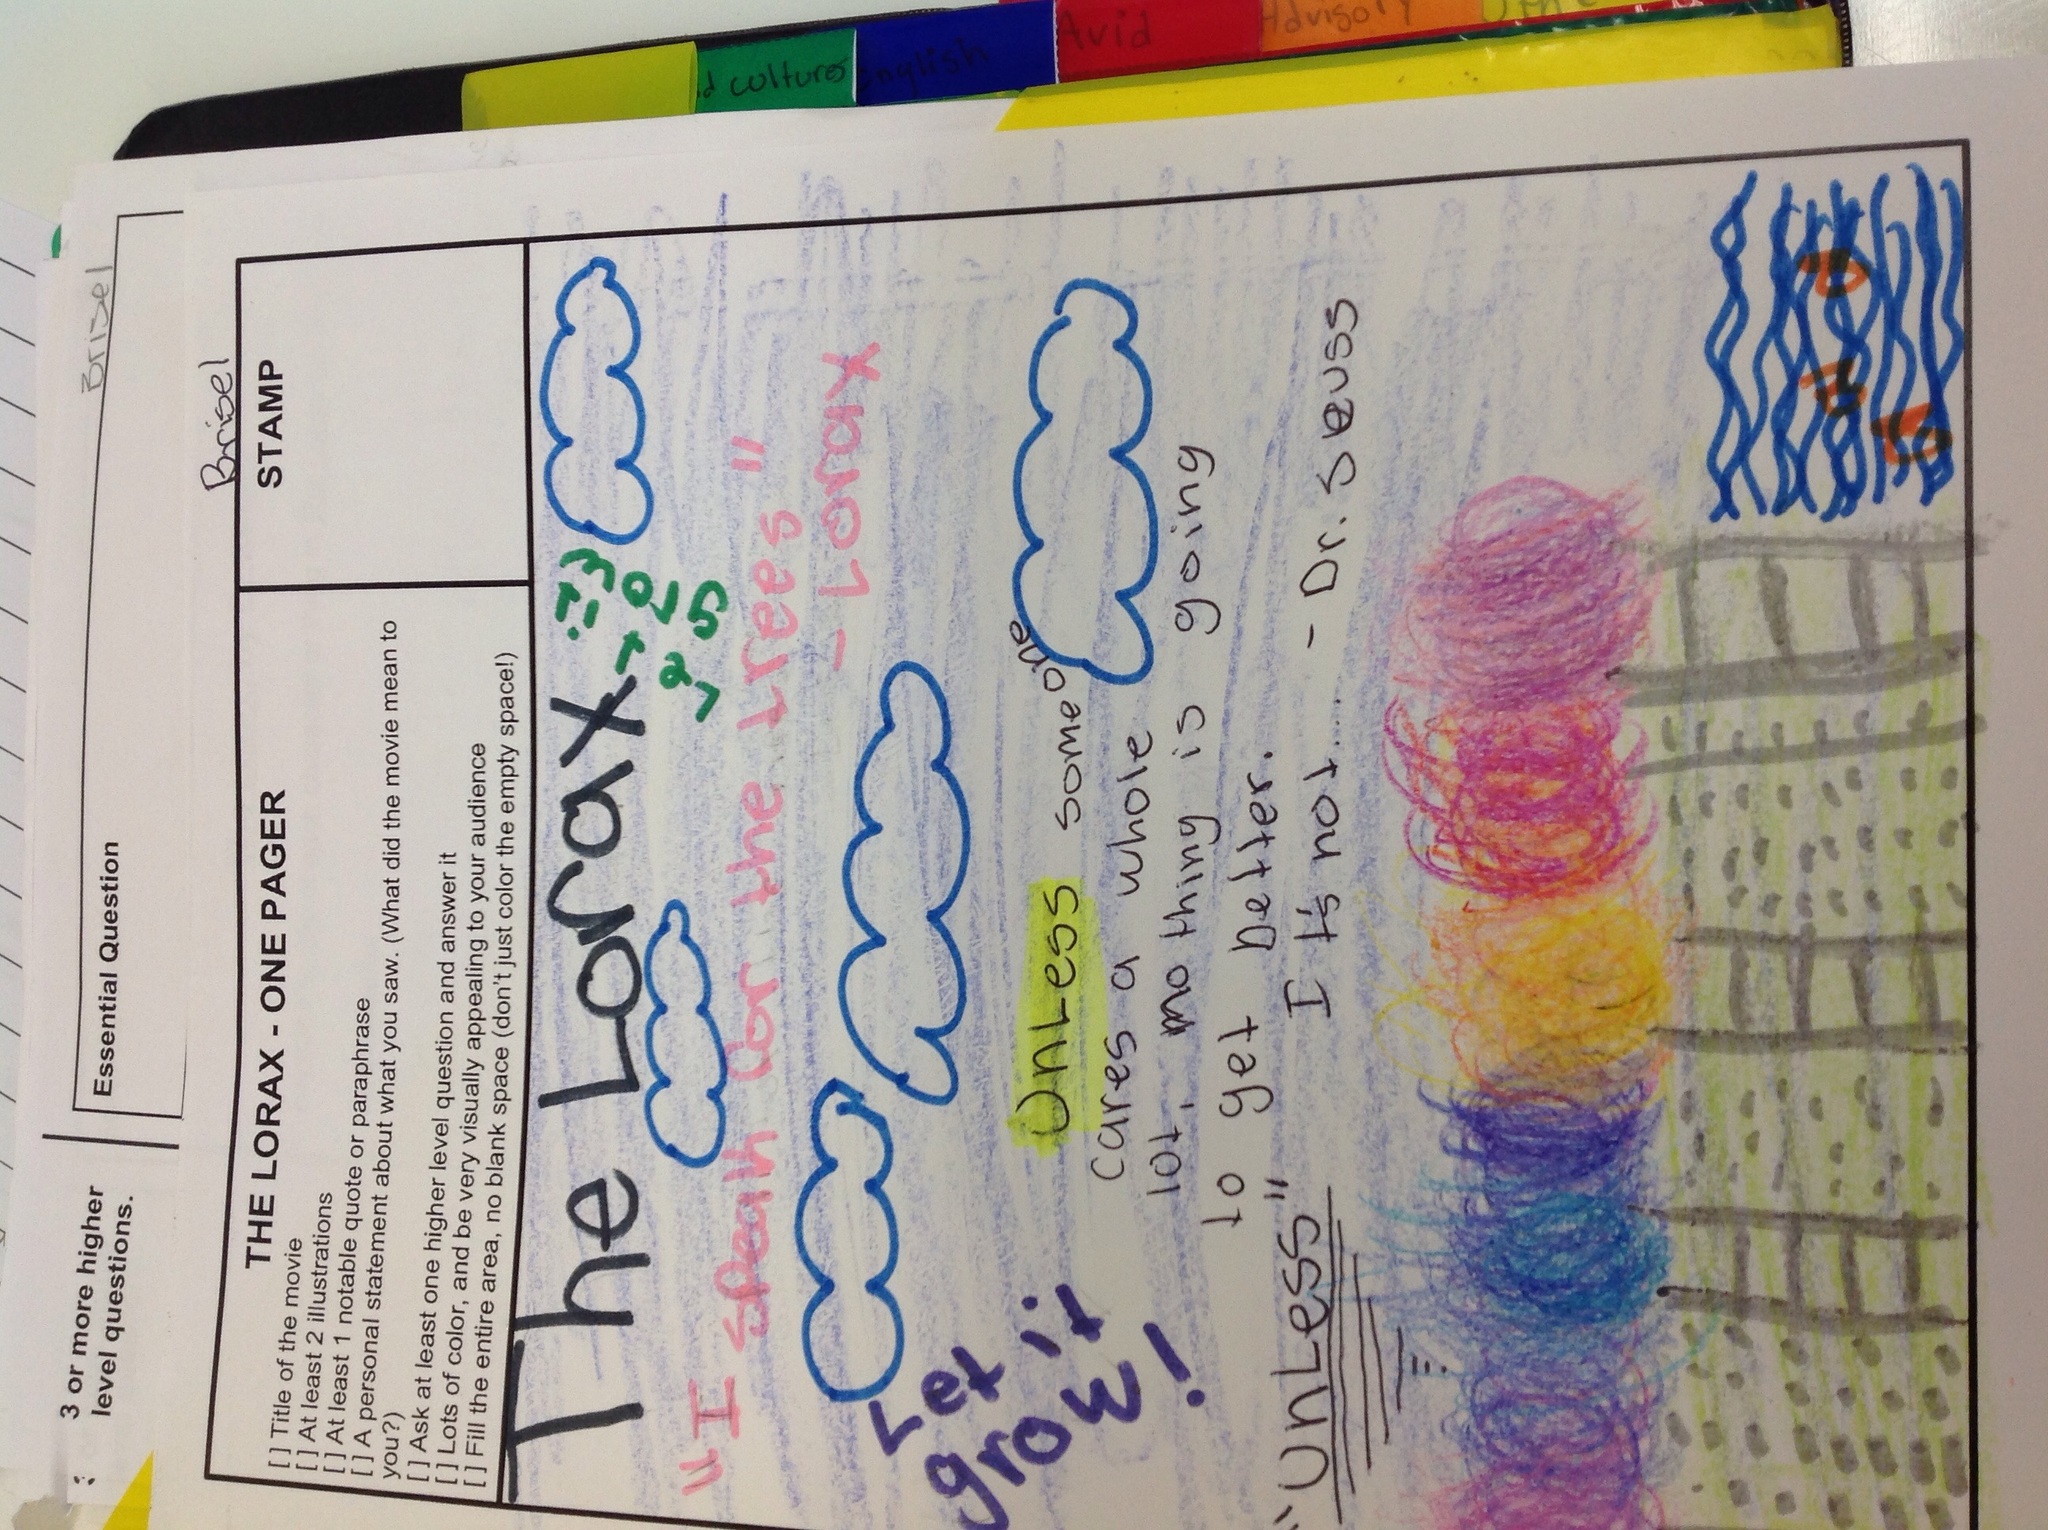 d cultures
English
Avid
Advisory
Brisel
Essential Question
3 or more higher
level questions.
Brisel
THE LORAX - ONE PAGER
STAMP
[ ] Title of the movie
[ ] At least 2 illustrations
[ ] At least 1 notable quote or paraphrase
[ ] A personal statement about what you saw. (What did the movie mean to
you?)
[ ] Ask at least one higher level question and answer it
[ ] Lots of color, and be very visually appealing to your audience
[ ] Fill the entire area, no blank space (don't just color the empty space!)
The Lorax
Let it
grow
"I speak for the trees"
- Lorax
Let it
grow!
UnLess someone
cares a whole
lot, nothing is going
to get better.
It's not.... - Dr. Seuss
"UnLess"